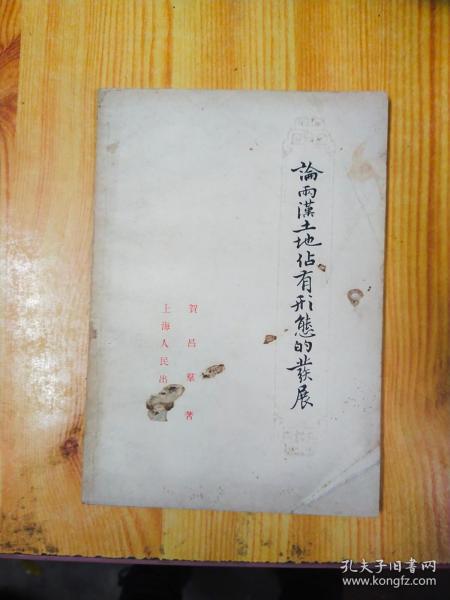 論兩漢土地佔有形態的發展
賀昌羣著
上海人民出
孔夫子旧书网
www.kongfz.com